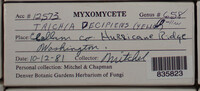 Acc # 12573 MYXOMYCETE Genus # 658
TRICHIA DECIPIENS
Clallam co Hurricane Ridge
Washington.
DATE 10-12-81 Collector Mitchel
Personal collection: Mitchel & Chapman
Denver Botanic Gardens Herbarium of Fungi
835823